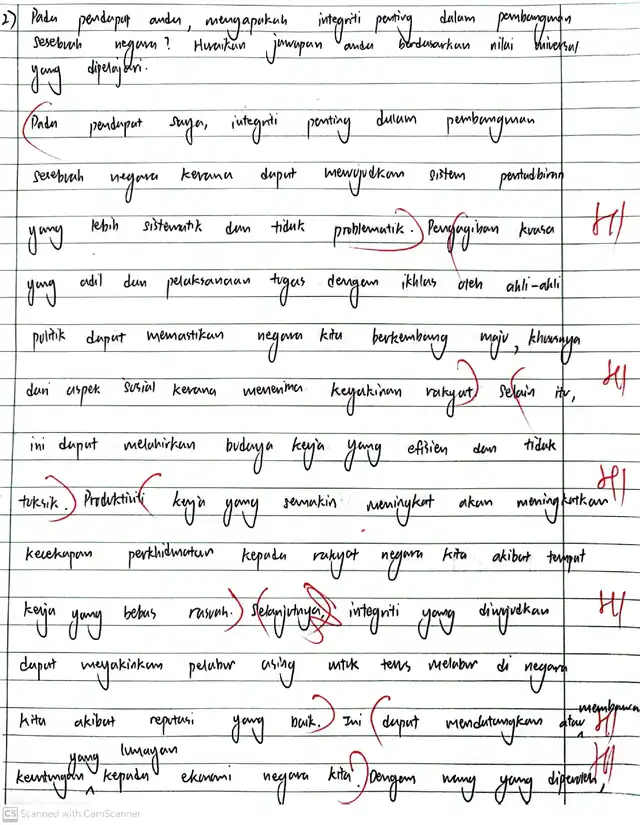 2) Pada pendapat anda, mengapakah integriti penting dalam pembangunan
sesebuah negara? Huraikan jawapan anda berdasarkan nilai universal
yang dipelajari.
Pada pendapat saya, integriti penting dalam pembangunan
sesebuah negara kerana dapat mewujudkan sistem pentadbiran
yang lebih sistematik dan tidak problematik. Pengagihan kuasa H1
yang adil dan pelaksanaan tugas dengan ikhlas oleh ahli-ahli
politik dapat memastikan negara kita berkembang maju, khususnya
dari aspek sosial kerana menerima keyakinan rakyat. Selain itu, H1
ini dapat melahirkan budaya kerja yang efisien dan tidak
toksik. Produktiviti kerja yang semakin meningkat akan meningkatkan H1
kecekapan perkhidmatan kepada rakyat negara kita akibat tempat
kerja yang bebas rasuah. Selanjutnya, integriti yang diwujudkan H1
dapat meyakinkan pelabur asing untuk terus melabur di negara
kita akibat reputasi yang baik. Ini dapat mendatangkan atau membawa H1
keuntungan yang lumayan kepada ekonomi negara kita. Dengan wang yang diperoleh, H1
CS Scanned with CamScanner